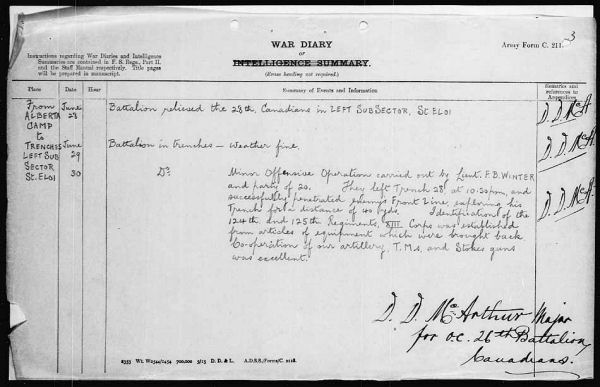 WAR DIARY
or
INTELLIGENCE SUMMARY.
(Erase heading not required.)
Army Form C. 2118.
3
Instructions regarding War Diaries and Intelligence
Summaries are contained in F. S. Regs., Part II.
and the Staff Manual respectively. Title pages
will be prepared in manuscript.
Place Date Hour Summary of Events and Information Remarks and
references to
Appendices
From June Battalion relieved the 28th Canadians in LEFT SUBSECTOR, St. ELOI D.D.McA.
ALBERTA 28
CAMP
to
TRENCHES June Battalion in trenches – Weather fine. D.D.McA.
LEFT SUB 29
SECTOR
St. ELOI 30 Do. Minor Offensive Operation carried out by Lieut. F.B. WINTER D.D.McA.
and party of 20. They left Trench 28 at 10.30pm, and
successfully penetrated enemys Front Line, entering his
Trench for a distance of 40 yds. Identification of the
124th and 125th Regiments, XIII Corps was established
from articles of equipment which were brought back
Co-operation of our artillery, T.M.s, and Stokes guns
was excellent.
D. D. McArthur Major
for O.C. 26th Battalion,
Canadians.
2353 Wt. W2544/1454 700,000 5/15 D. D. & L. A.D.S.S./Forms/C. 2118.